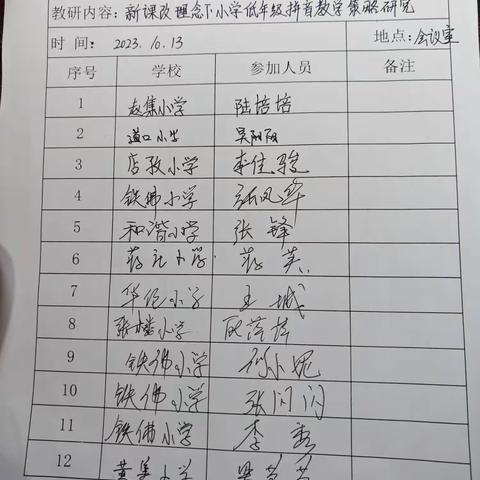 教研内容：新课改理念下小学低年级拼音教学策略研究
时 间： 2023.10.13 地点：会议室
序号 学校 参加人员 备注
1 赵集小学 陆培培
2 道口小学 吴阳阳
3 店孜小学 李佳骏
4 铁佛小学 张凤华
5 和谐小学 张锋
6 小学
7 小学 王城
8 张楼小学
9 铁佛小学 孙小妮
10 铁佛小学 张闪闪
11 铁佛小学 李秀
12 黄集小学